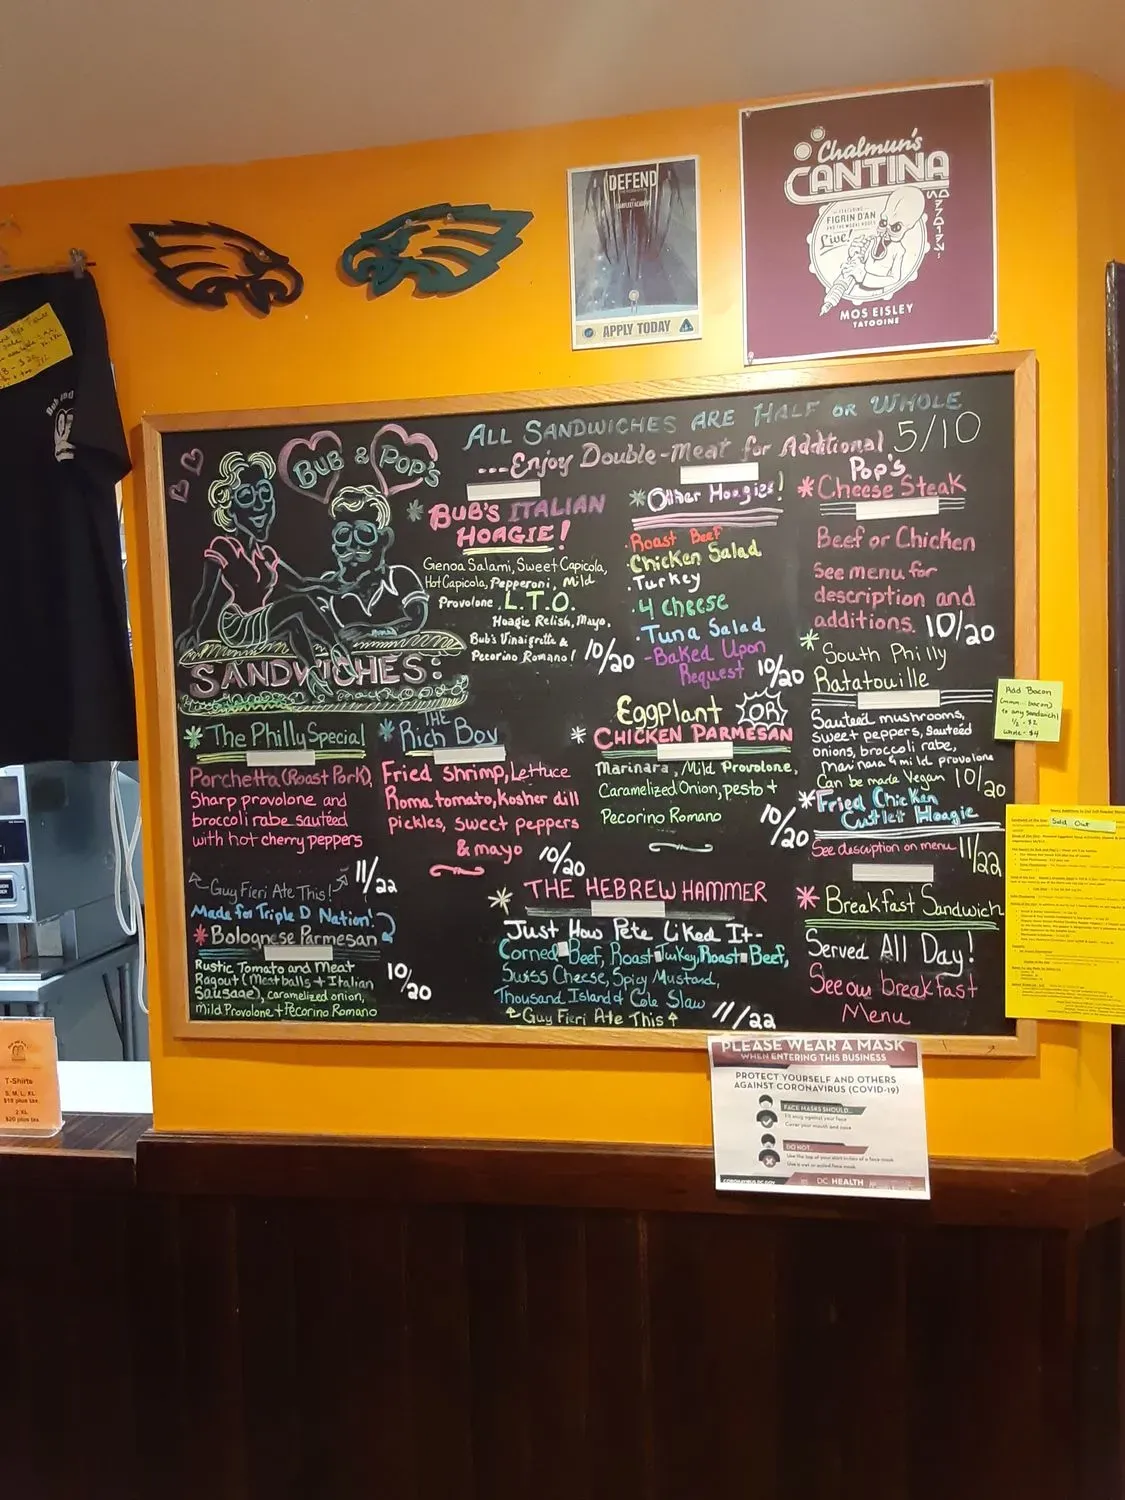 DEFEND
APPLY TODAY
Chalmun's
CANTINA
FEATURING
FIGRIN D'AN
AND THE MODAL NODES
Live!
MOS EISLEY
TATOOINE
ALL SANDWICHES ARE HALF OR WHOLE
...Enjoy Double-Meat for Additional 5/10
BUB & POP'S
SANDWICHES:
* BUB'S ITALIAN
HOAGIE!
Genoa Salami, Sweet Capicola,
Hot Capicola, Pepperoni, Mild
Provolone, L.T.O.
Hoagie Relish, Mayo,
Bub's Vinaigrette &
Pecorino Romano! 10/20
* Other Hoagies!
· Roast Beef
· Chicken Salad
· Turkey
· 4 Cheese
· Tuna Salad
- Baked Upon
Request 10/20
Pop's
* Cheese Steak
Beef or Chicken
See menu for
description and
additions. 10/20
* South Philly
Ratatouille
Sauteed mushrooms,
sweet peppers, Sautéed
onions, broccoli rabe,
Marinara & mild provolone
Can be made Vegan 10/20
* The Philly Special
Porchetta (Roast Pork),
Sharp provolone and
broccoli rabe sautéed
with hot cherry peppers
11/22
Guy Fieri Ate This!
Made for Triple D Nation!
* THE
Rich Boy
Fried Shrimp, Lettuce
Roma tomato, Kosher dill
pickles, sweet peppers
& mayo 10/20
EGGPlant OR
* CHICKEN PARMESAN
Marinara, Mild Provolone,
Caramelized Onion, pesto +
Pecorino Romano 10/20
* Fried Chicken
Cutlet Hoagie
See description on menu 11/22
* Bolognese Parmesan
Rustic Tomato and Meat
Ragout (Meatballs + Italian
Sausage), caramelized onion,
mild Provolone + Pecorino Romano
10/20
* THE HEBREW HAMMER
Just How Pete Liked It-
Corned Beef, Roast Turkey, Roast Beef,
Swiss Cheese, Spicy Mustard,
Thousand Island & Cole Slaw
Guy Fieri Ate This 11/22
* Breakfast Sandwich
Served All Day!
See our breakfast
Menu
Add Bacon
(mmm... bacon)
to any sandwich!
1/2 - $2
whole - $4
Sold Out
T-Shirts
S, M, L, XL
$18 plus tax
2 XL
$20 plus tax
PLEASE WEAR A MASK
WHEN ENTERING THIS BUSINESS
PROTECT YOURSELF AND OTHERS
AGAINST CORONAVIRUS (COVID-19)
FACE MASKS SHOULD...
Fit snug against your face
Cover your mouth and nose
DO NOT...
Use the top of your shirt in lieu of a face mask
Use a wet or soiled face mask
CORONAVIRUS.DC.GOV
DC HEALTH